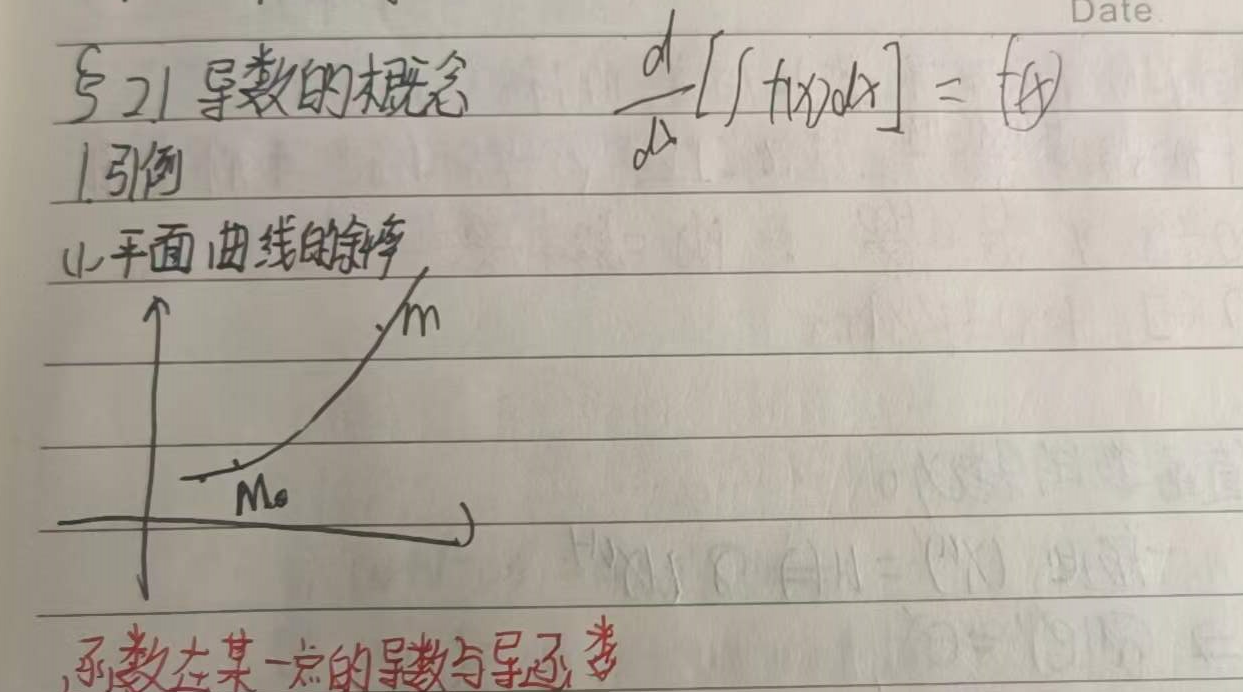 Date
§2.1 导数的概念 d/dx[∫f(x)dx] = f(x)
1.引例
(1)平面曲线的斜率
M
M₀
函数在某一点的导数与导函数